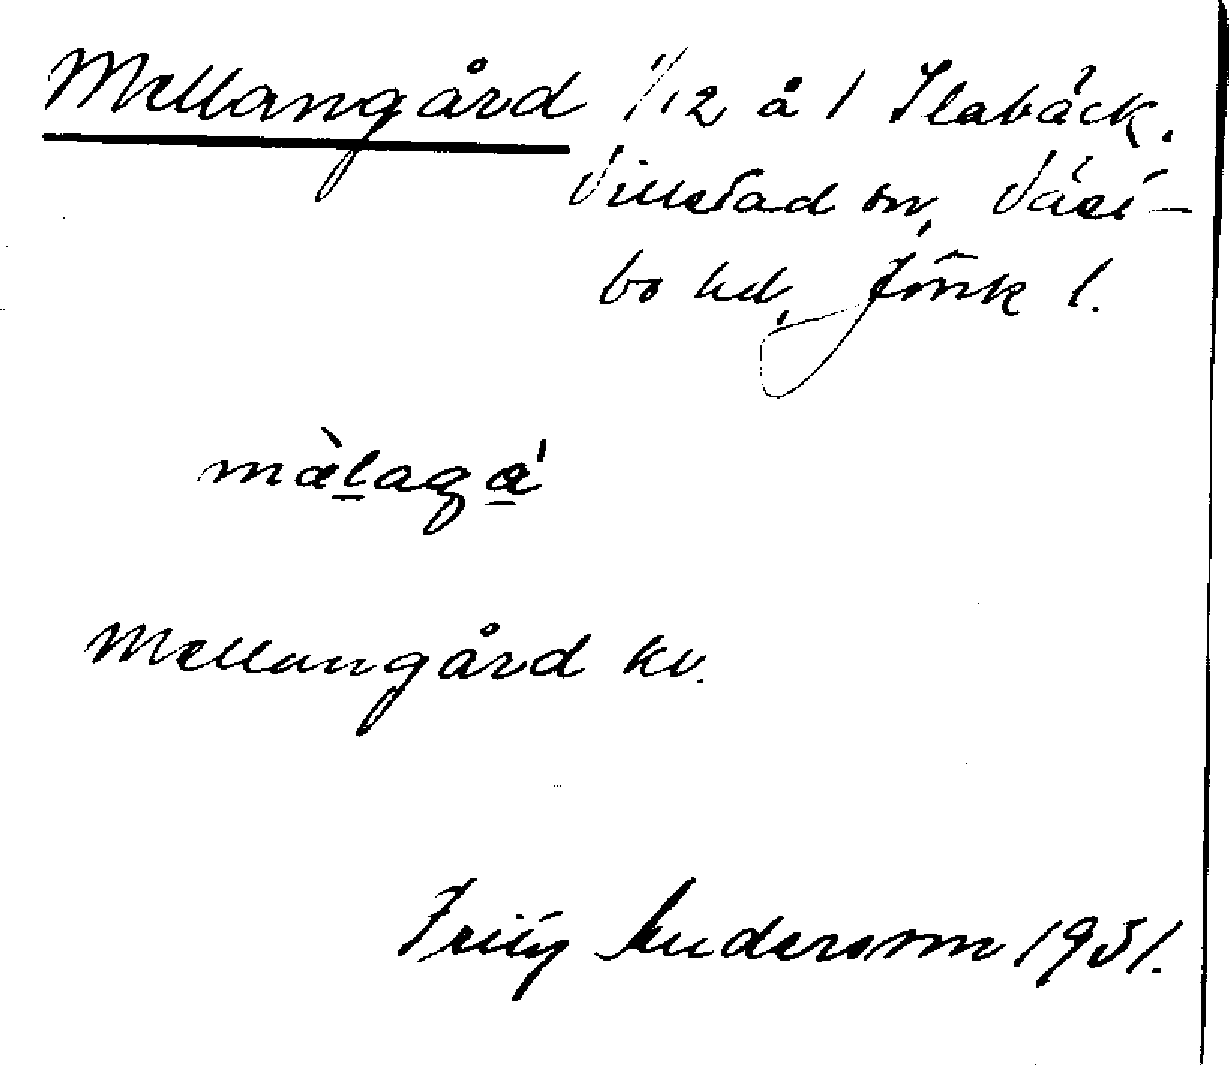 Mellangård 1/12 å 1 Slabäck.
Villstad sn, Väst-
bo hd, Jönk l.
mælagå
Mellangård kv.
Fritz Andersson 1931.